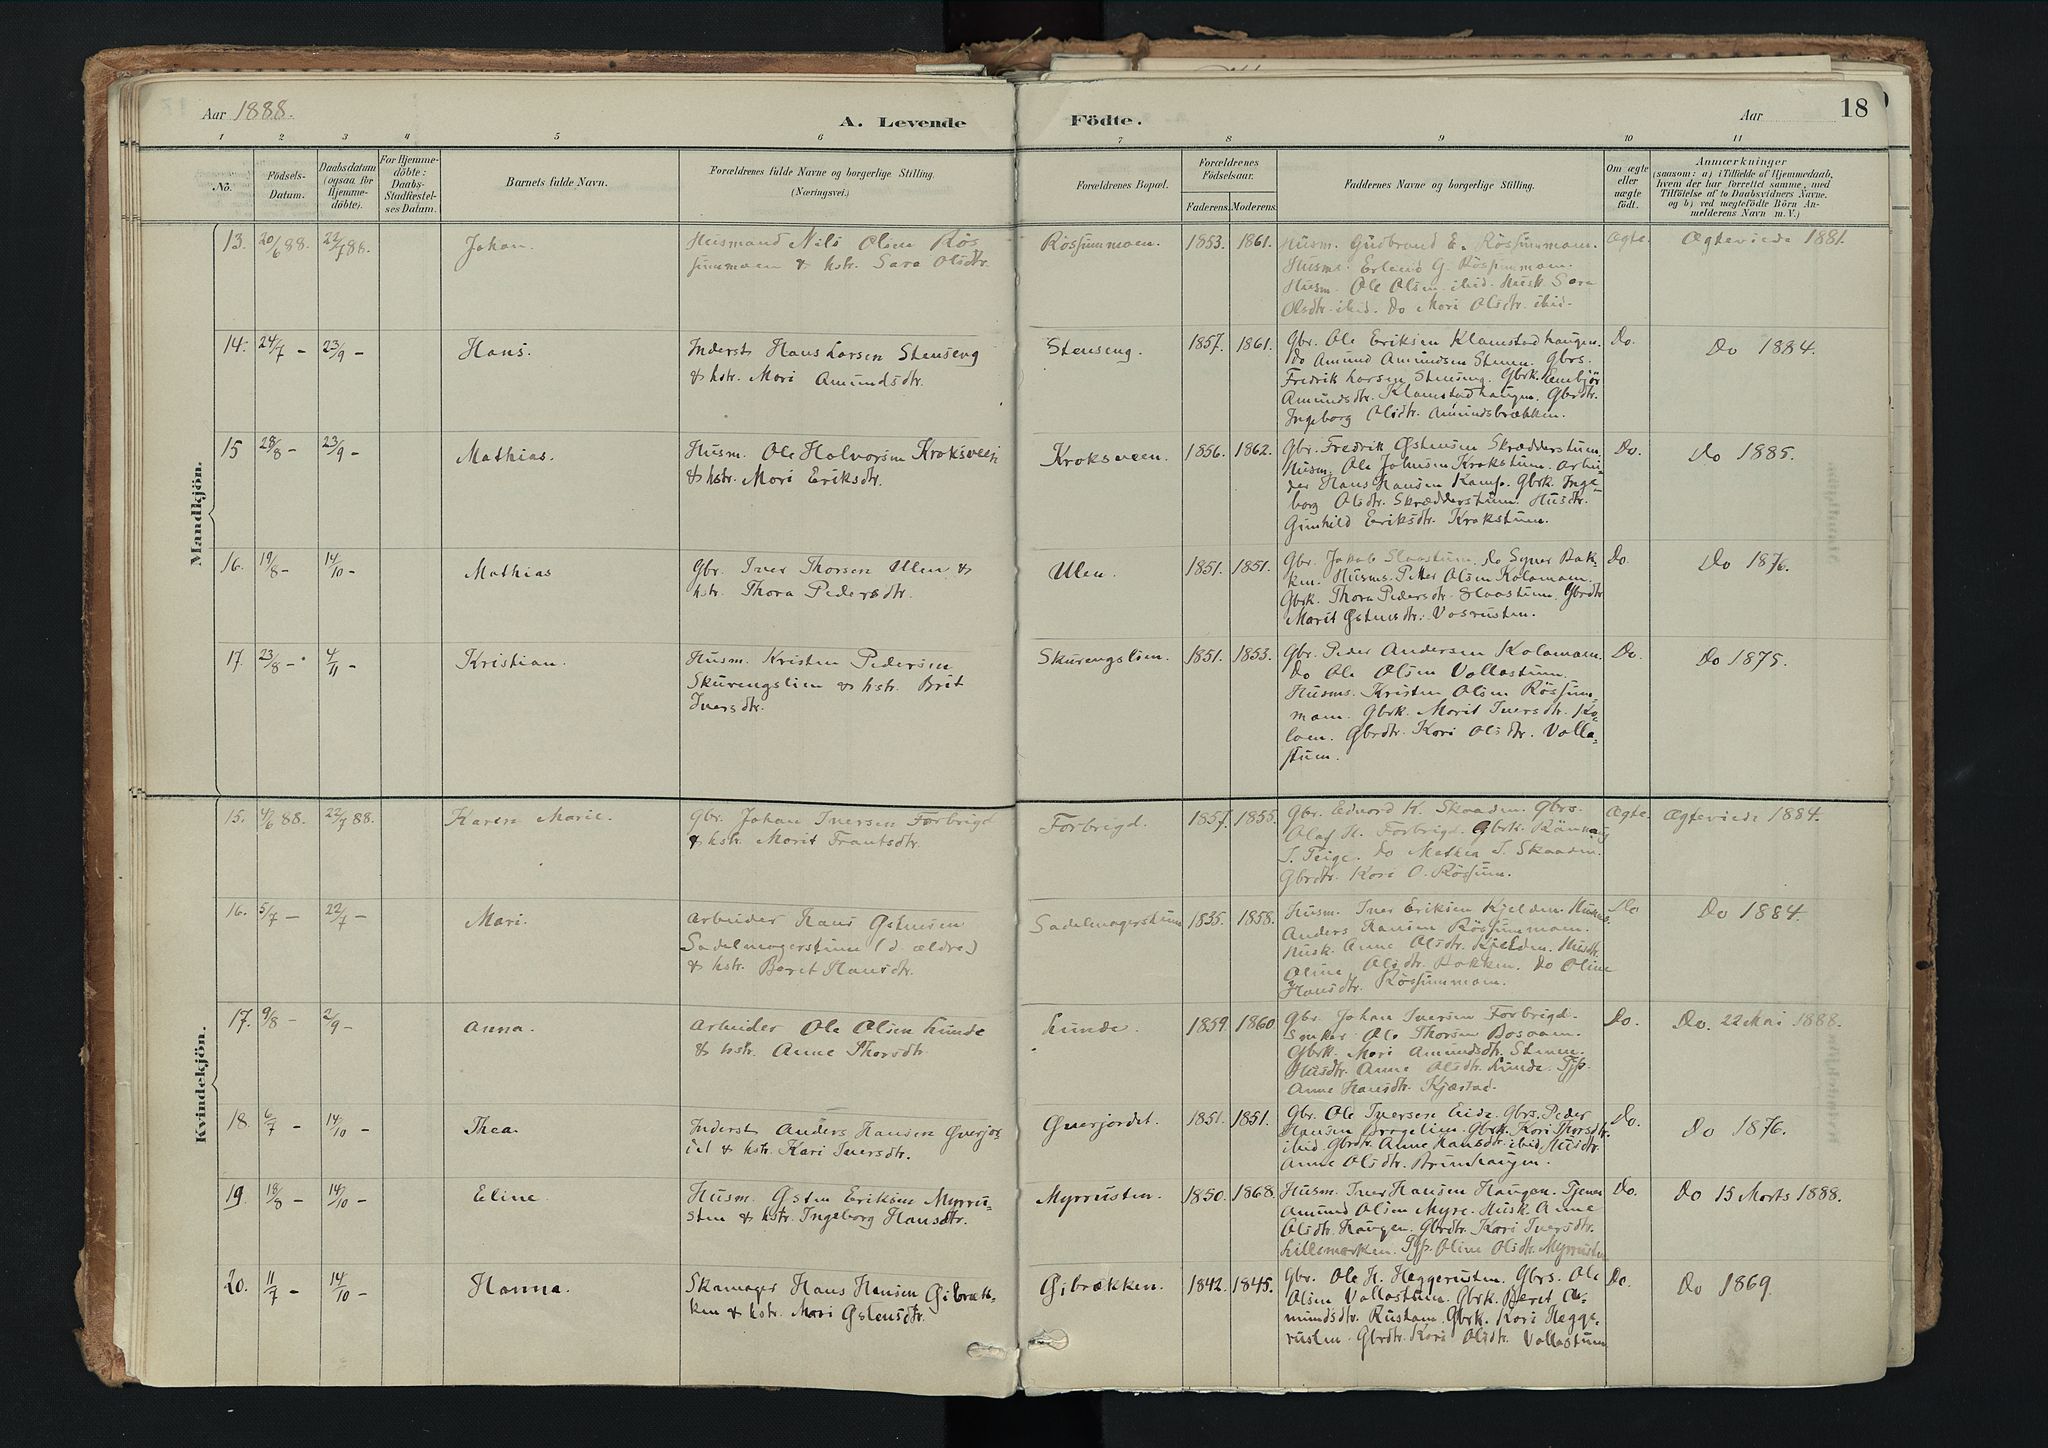 Aar 1888.
A. Levende Födte.
Aar
18
1 2 3 4 5 6 7 8 9 10 11
No.
Födsels-Datum.
Daabsdatum (ogsaa for Hjemme-döbte).
For Hjemme-döbte: Daabs-Stadfæstel-ses Datum.
Barnets fulde Navn.
Forældrenes fulde Navne og borgerlige Stilling. (Næringsvei.)
Forældrenes Bopæl.
Forældrenes Födselsaar.
Faderens. Moderens.
Faddernes Navne og borgerlige Stilling.
Om ægte eller uægte födt.
Anmærkninger
(saasom: a) i Tilfælde af Hjemmedaab,
hvem der har forrettet samme, med
Tilföielse af to Daabsvidners Navne.
og b) ved uægtefödte Börn An-
melderens Navn m. V.)
Mandkjön.
13. 20/6 88. 22/7 88. Johan.
Husmand Nils Olsen Rös
summoen & hstr. Sara Olsdtr.
Rössummoen. 1853. 1861.
Husm. Gudbrand E. Rössummoen.
Husms. Erland G. Rössummoen.
Husm. Ole Olsen ibid. Husk. Sara
Olsdtr. ibid. Do Mari Olsdtr. ibid.
Ægte. Ægteviede 1881.
14. 24/7 – 23/9 – Hans.
Inderst Hans Larsen Stenseng
& hstr. Mari Amundsdtr.
Stenseng. 1857. 1861.
Gbr. Ole Eriksen Klamstadhaugen.
Do Amund Amundsen Stenen. Gbrs.
Fredrik Larsen Stenseng. Gbrk. Embjör
Amundsdtr. Klamstadhaugen. Gbrdtr.
Ingeborg Olsdtr. Amundsbrækken.
Do. Do 1884.
15 28/8 – 23/9 – Mathias.
Husm. Ole Halvorsen Kroksveen
& hstr. Mari Eriksdtr.
Kroksveen. 1856. 1862.
Gbr. Fredrik Østensen Skrædderstuen.
Husm. Ole Johnsen Krokstuen. Arbei-
der Hans Hansen Kamp. Gbrk. Inge-
borg Olsdtr. Skrædderstuen. Husdtr.
Gunhild Eriksdtr. Krokstuen.
Do. Do 1885.
16. 19/8 – 14/10 – Mathias
Gbr. Iver Thorsen Ulen &
hstr. Thora Pedersdtr.
Ulen. 1851. 1851.
Gbr. Jakob Slaastuen. Do Syver Bak-
ken. Husms. Petter Olsen Kolomoen.
Gbrk. Thora Pedersdtr. Slaastuen. Gbrdtr
Marit Østensdtr. Vosrusten.
Do. Do 1876.
17. 23/8 – 4/11 – Kristian.
Husm. Kristen Pedersen
Skurengslien & hstr. Brit
Iversdtr.
Skurengslien. 1851. 1853.
Gbr. Peder Andersen Kolomoen.
Do Ole Olsen Vollastuen.
Husms. Kristen Olsen Rössum-
moen. Gbrk. Marit Iversdtr. Ko-
loen. Gbrdtr. Kari Olsdtr. Volla-
stuen.
Do. Do 1875.
Kvindekjön.
15. 4/6 88. 22/7 88. Karen Marie.
Gbr. Johan Iversen Forbrigd
& hstr. Marit Frantsdtr.
Forbrigd. 1857. 1855.
Gbr. Edvard K. Skaaden. Gbrs.
Olaf H. Forbrigd. Gbrk. Rönnaug
I. Teige. Do Mathea I. Skaaden.
Gbrdtr. Kari O. Rössum.
Ægte. Ægteviede 1884.
16. 5/7 – 22/7 – Mari.
Arbeider Hans Østensen
Sadelmagerstuen (d. ældre)
& hstr. Beret Hansdtr.
Sadelmagerstuen 1835. 1858.
Husm. Iver Eriksen Kjelden. Husms
Anders Hansen Rössummoen.
Husk. Anne Olsdtr. Kjelden. Husdtr.
Oline Olsdtr. Bakken. Do Oline
Hansdtr. Rössummoen.
Do Do 1884.
17. 9/8 – 2/9 – Anna.
Arbeider Ole Olsen Lunde
& hstr. Anne Thorsdtr.
Lunde. 1859. 1860
Gbr. Johan Iversen Forbrigd.
Ole Thorsen
Gbrk. Mari Amundsdtr. Stenen.
Husdtr. Anne Olsdtr. Lunde. Tjp.
Anne Hansdtr. Kjæstad.
Do. Do. 22 Mai 1888.
18. 6/7 – 14/10 – Thea
Inderst Anders Hansen Qverjor
det & hstr. Kari Iversdtr.
Qverjordet. 1851. 1851.
Gbr. Ole Iversen Eide. Gbrs. Peder
Hansen Bragelien. Gbrk. Kari Thorsdtr.
ibid. Gbrdtr. Anne Hansdtr. ibid. Husdtr.
Anne Olsdtr. Brunhaugen.
Do. Do 1876.
19. 18/8 – 14/10 – Eline.
Husm. Østen Eriksen Myrru-
sten & hstr. Ingeborg Hansdtr.
Myrrusten. 1850. 1868.
Husm. Iver Hansen Haugen. Tjener
Amund Olsen Myre. Husk. Anne
Olsdtr. Haugen. Gbrdtr. Kari Iversdtr.
Lillemarken. Tjp. Oline Olsdtr. Myrrusten
Do. Do 15 Marts 1888.
20. 11/7 – 14/10 – Hanna.
Skomager Hans Hansen Gibræk-
ken & hstr. Mari Østensdtr.
Gibrækken. 1842. 1845.
Gbr. Ole H. Heggerusten. Gbrs. Ole
Olsen Vollastuen. Gbrk. Beret A-
mundsdtr. Rustom. Gbrk. Kari Hegge-
rusten. Gbrdtr. Kari Olsdtr. Vollastuen
Do. Do 1869.